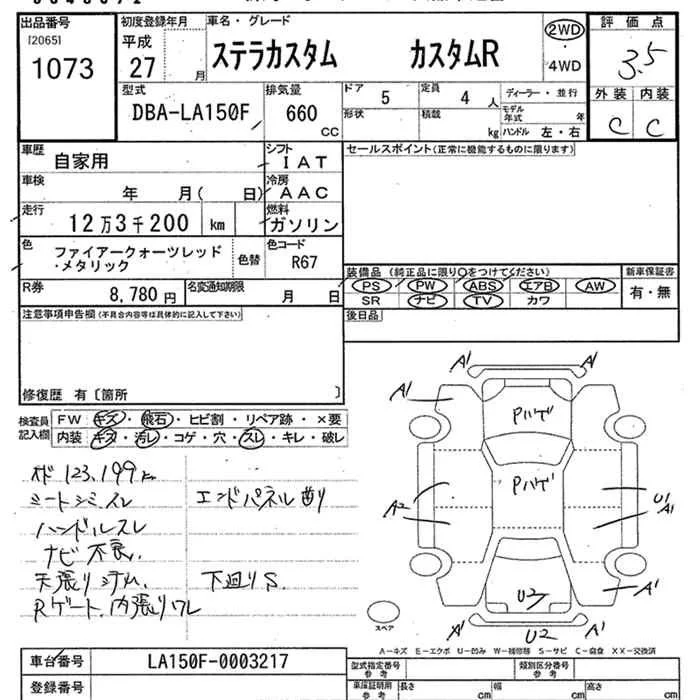 出品番号
[2065]
1073
初度登録年月
平成
27 月
車名・グレード
ステラカスタム カスタムR
2WD
・
4WD
評価点
3.5
外装 内装
C C
型式
DBA-LA150F
排気量
660
CC
ドア
5
定員
4 人
形状
積載
kg
ディーラー・並行
モデル年式 年
ハンドル 左・右
車歴
自家用
シフト
IAT
車検
年 月( 日)
冷房
AAC
走行
12万3千200 km
燃料
ガソリン
色
ファイアークォーツレッド
・メタリック
色替
色コード
R67
R券
8,780 円
名変通知期限
月 日
セールスポイント(正常に機能するものに限ります)
装備品 (純正品に限り○をつけてください)
PS PW ABS エアB AW
SR ナビ TV カワ
新車保証書
有・無
後日品
注意事項申告欄(不具合内容等は具体的に記入して下さい)
修復歴 有〔箇所 〕
検査員
記入欄
FW キズ・飛石・ヒビ割・リペア跡・×要
内装 キズ・汚レ・コゲ・穴・スレ・キレ・破レ
メド 123,199 km
シートシミ、スレ
ハンドルスレ
ナビ不良
天張りシミ
Rゲート、内張りワレ
エンドパネル凹り
下廻りS
A1 A1
A1 A1
Pハゲ
Pハゲ
A2
U1
A1
A1
U2
A1 U2 A1
スペア
A-キズ E-エクボ U-凹み W-補修跡 S-サビ C-腐食 XX-交換済
車台番号
LA150F-0003217
登録番号
型式指定番号
参考
類別区分番号
参考
車庫証明用
参考
長さ cm
幅 cm
高さ cm